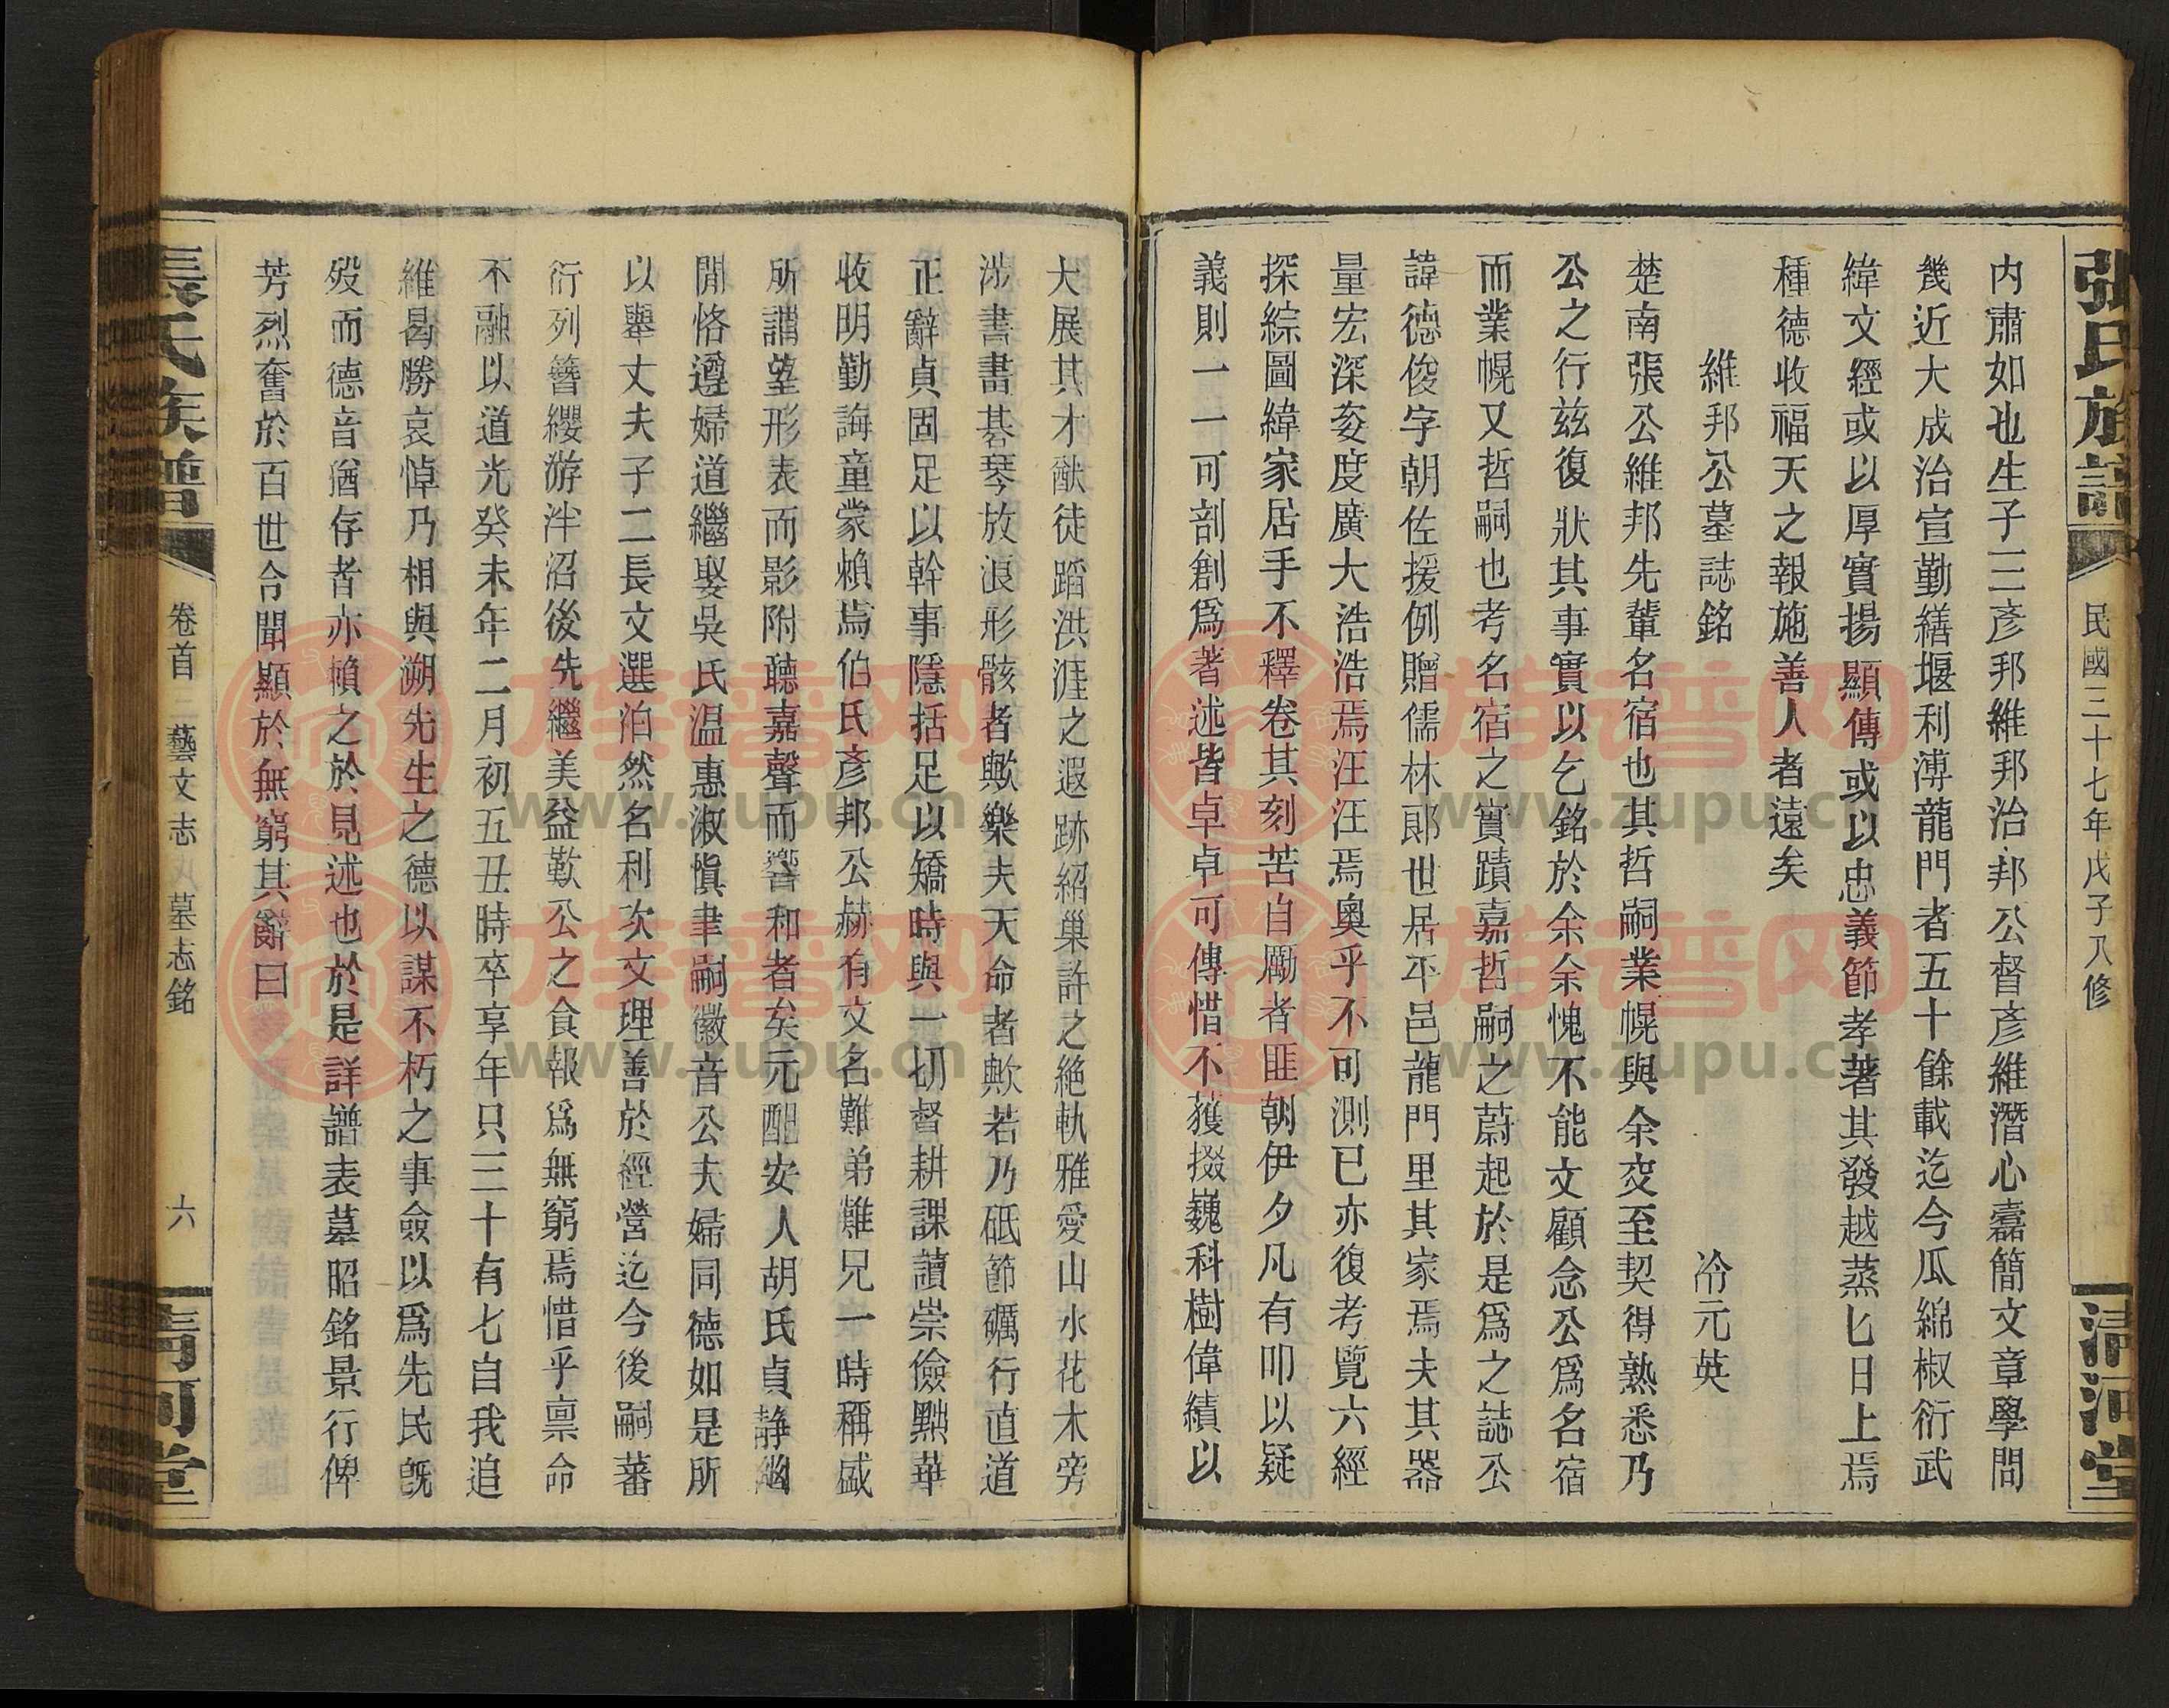 張氏族譜
民國三十七年戊子八修
清河堂
內肅如也生子三彥邦維邦治邦公督彥維潛心嚞簡文章學問
幾近大成治宣勤繕堰利溥龍門者五十餘載迄今瓜綿椒衍武
緯文經或以厚實揚顯傳或以忠義節孝著其發越蒸匕日上焉
種德收福天之報施善人者遠矣
維邦公墓誌銘
冷元英
楚南張公維邦先輩名宿也其哲嗣業幌與余交至契得熟悉乃
公之行兹復狀其事實以乞銘於余余愧不能文顧念公爲名宿
而業幌又哲嗣也考名宿之實蹟嘉哲嗣之蔚起於是爲之誌公
諱德俊字朝佐援例贈儒林郎世居平邑龍門里其家焉夫其器
量宏深姿度廣大浩浩焉汪汪焉奧乎不可測已亦復考覽六經
探綜圖緯家居手不釋卷其刻苦自勵者匪朝伊夕凡有叩以疑
義則一一可剖創爲著述皆卓卓可傳惜不獲掇巍科樹偉績以
大展其才猷徒蹈洪涯之遐跡紹巢許之絶軌雅愛山水花木旁
涉書畫碁琴放浪形骸者歟樂夫天命者歟若乃砥節礪行直道
正辭貞固足以幹事隱括足以矯時與一切督耕課讀崇儉黜華
收明勤誨童蒙賴焉伯氏彥邦公赫有文名難弟難兄一時稱盛
所謂望形表而影附聽嘉聲而響和者矣元配安人胡氏貞静幽
閒恪遵婦道繼娶吳氏温惠淑愼聿嗣徽音公夫婦同德如是所
以舉丈夫子二長文選泊然名利次文理善於經營迄今後嗣蕃
衍列簪纓游泮沼後先繼美益歎公之食報爲無窮焉惜乎禀命
不融以道光癸未年二月初五丑時卒享年只三十有七自我追
維曷勝哀悼乃相與溯先生之德以謀不朽之事僉以爲先民既
歿而德音猶存者亦賴之於見述也於是詳譜表墓昭銘景行俾
芳烈奮於百世令聞顯於無窮其辭曰
張氏族譜
卷首三藝文志八墓志銘
六
清河堂